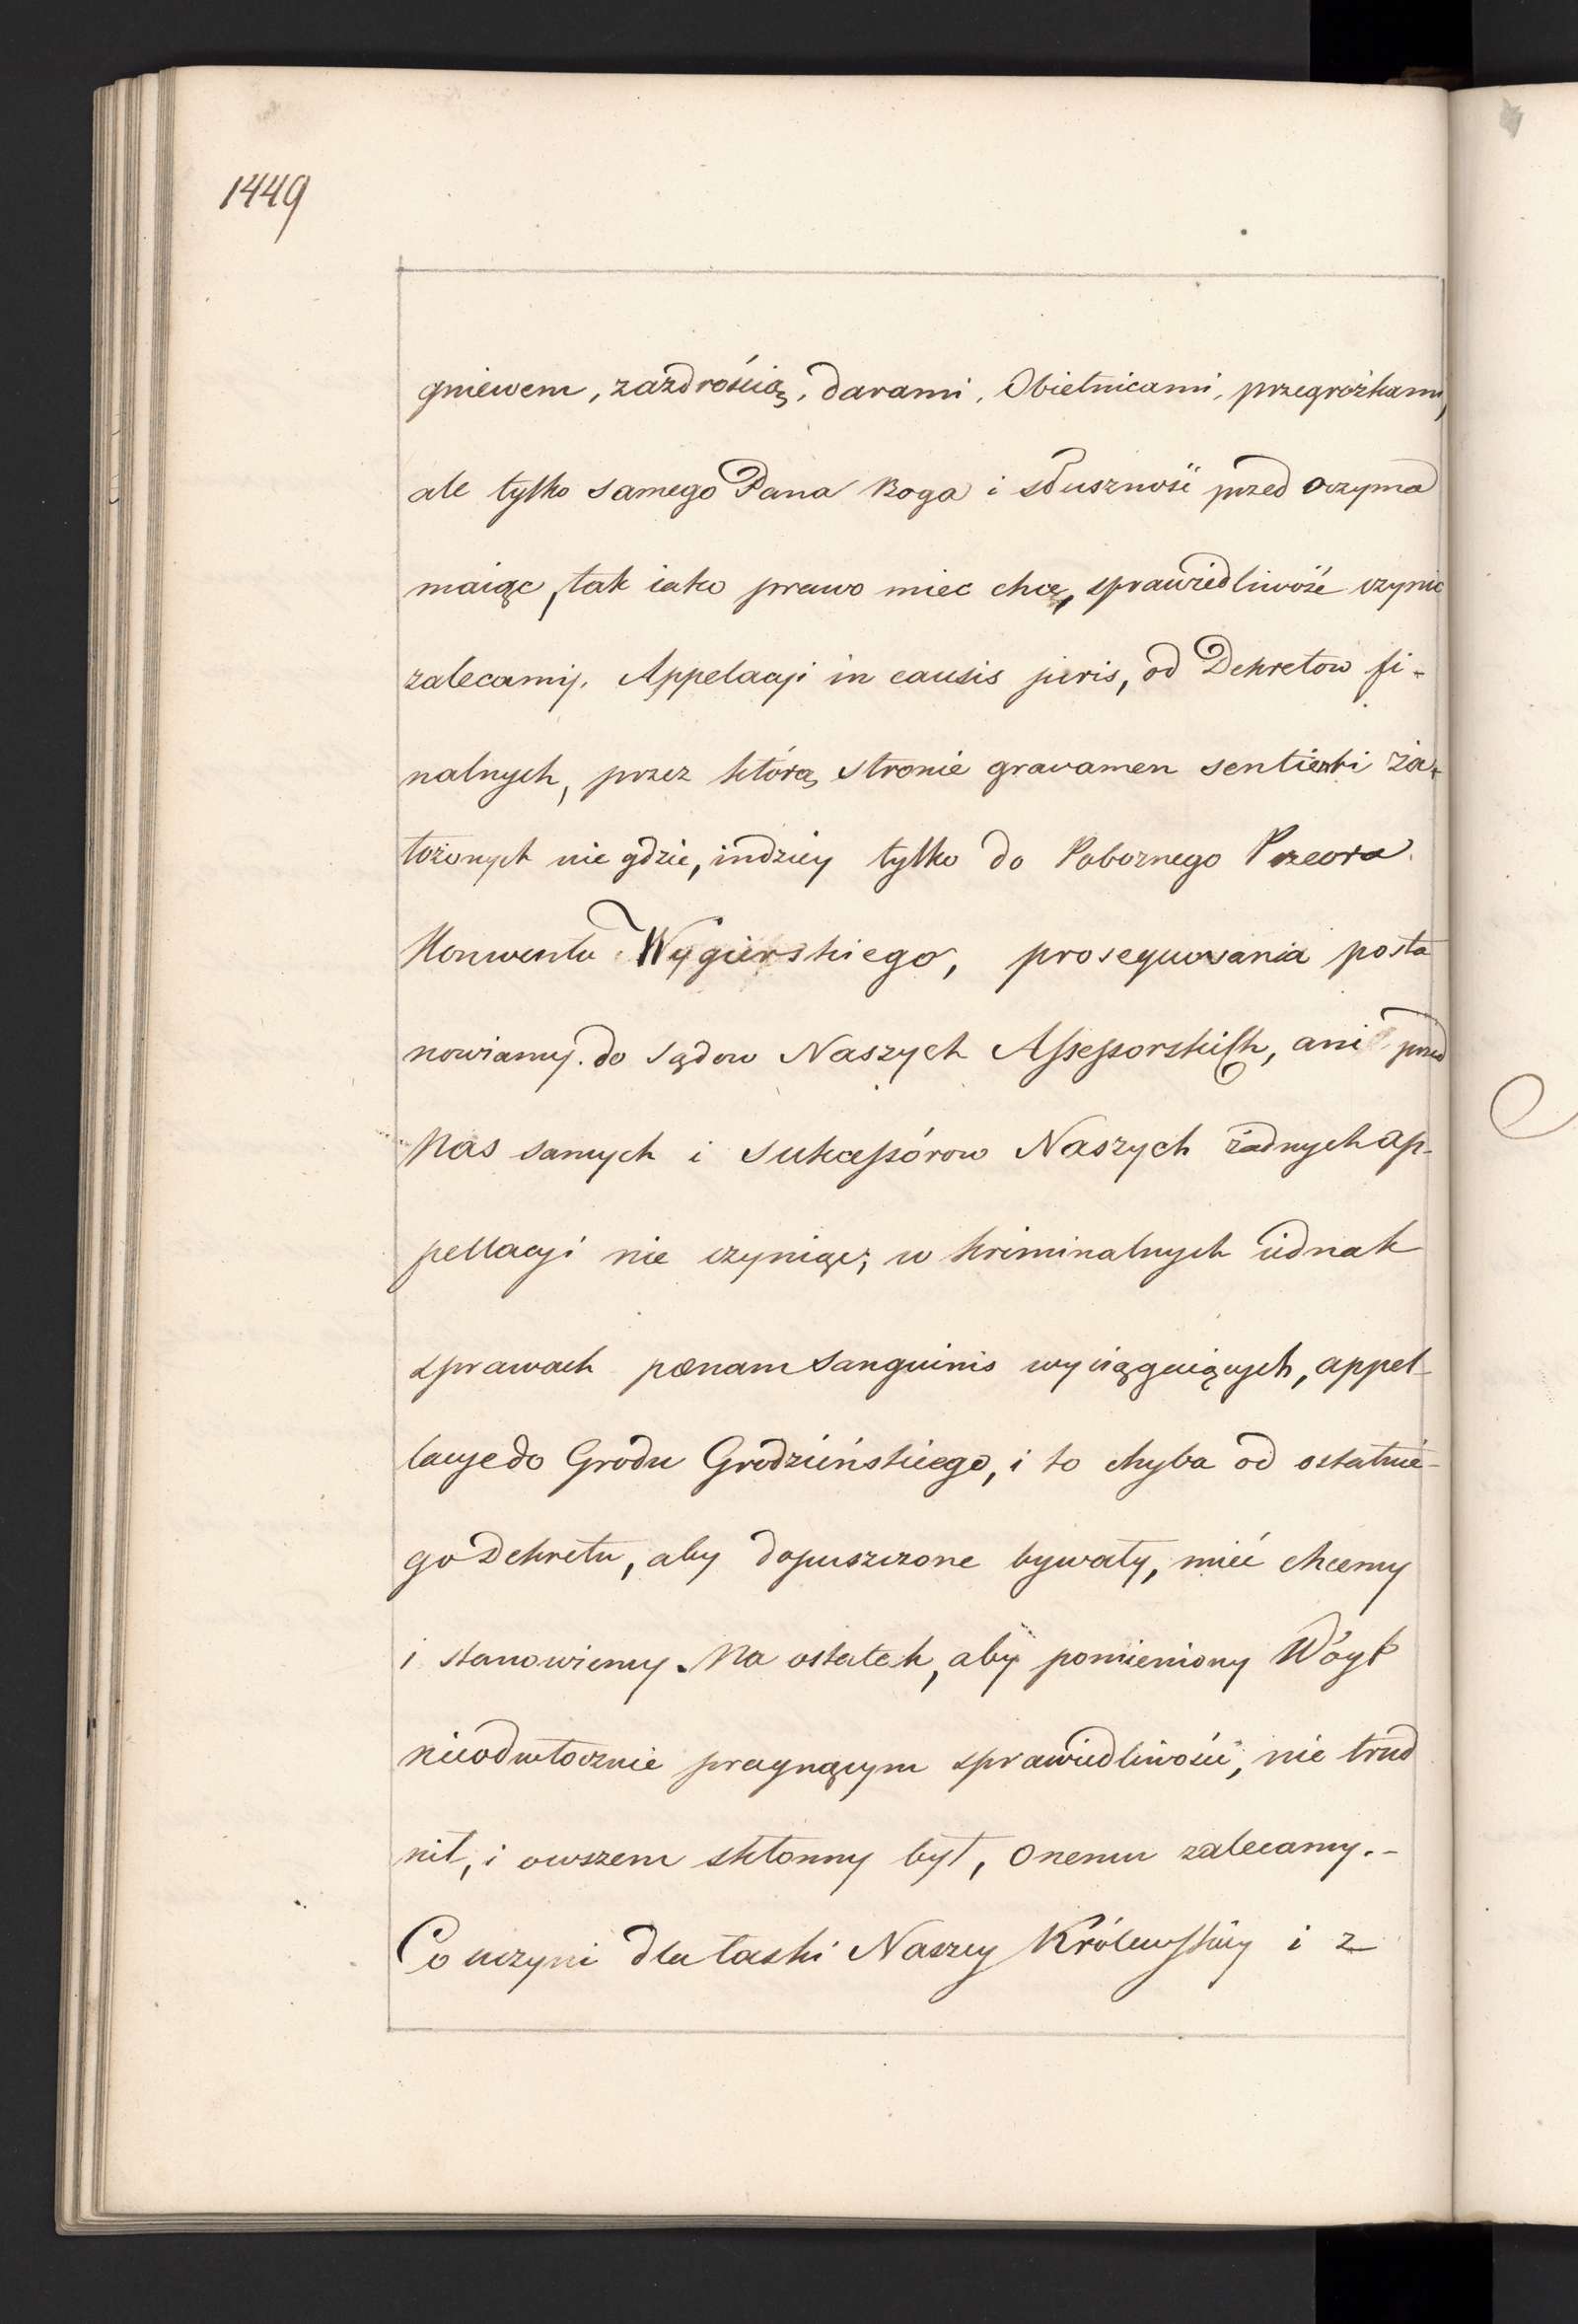 1449
gniewem, zazdrością, darami, Obietnicami, przegrożkami,
ale tylko samego Pana Boga i słuszność przed oczyma
maiąc, tak iako prawo miec chce, sprawiedliwość czynic
zalecamy. Appelacji in causis juris, od Dekretow fi-
nalnych, przez którą stronie gravamen sentienti za-
łożonych nie gdzie, indziey tylko do Pobożnego Przeora
Konwentu Wygierskiego, prosequwania posta
nowiamy. do sądow Naszych Assessorskich, ani przed
Nas samych i sukcessórow Naszych żadnych ap-
pellacyi nie czyniąc; w kriminalnych iednak
sprawach pœnam sanguinis wyciągaiących, appel-
lacye do Grodu Grodzieńskiego, i to chyba od ostatnie-
go Dekretu, aby dopuszczone bywały, mieć chcemy
i stanowiemy. Na ostatek, aby pomieniony Wóyt
nieodwłocznie pragnącym sprawiedliwości, nie trud
nił, i owszem skłonny był, onemu zalecamy.-
Co uczyni dla łaski Naszey Królewskiey i z